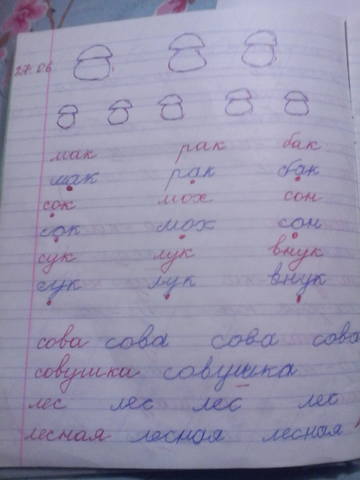 27.06
мак рак бак
мак рак бак
сок мох сон
сок мох сон
сук лук внук
сук лук внук
сова сова сова сова
совушка совушка
лес лес лес лес
лесная лесная лесная